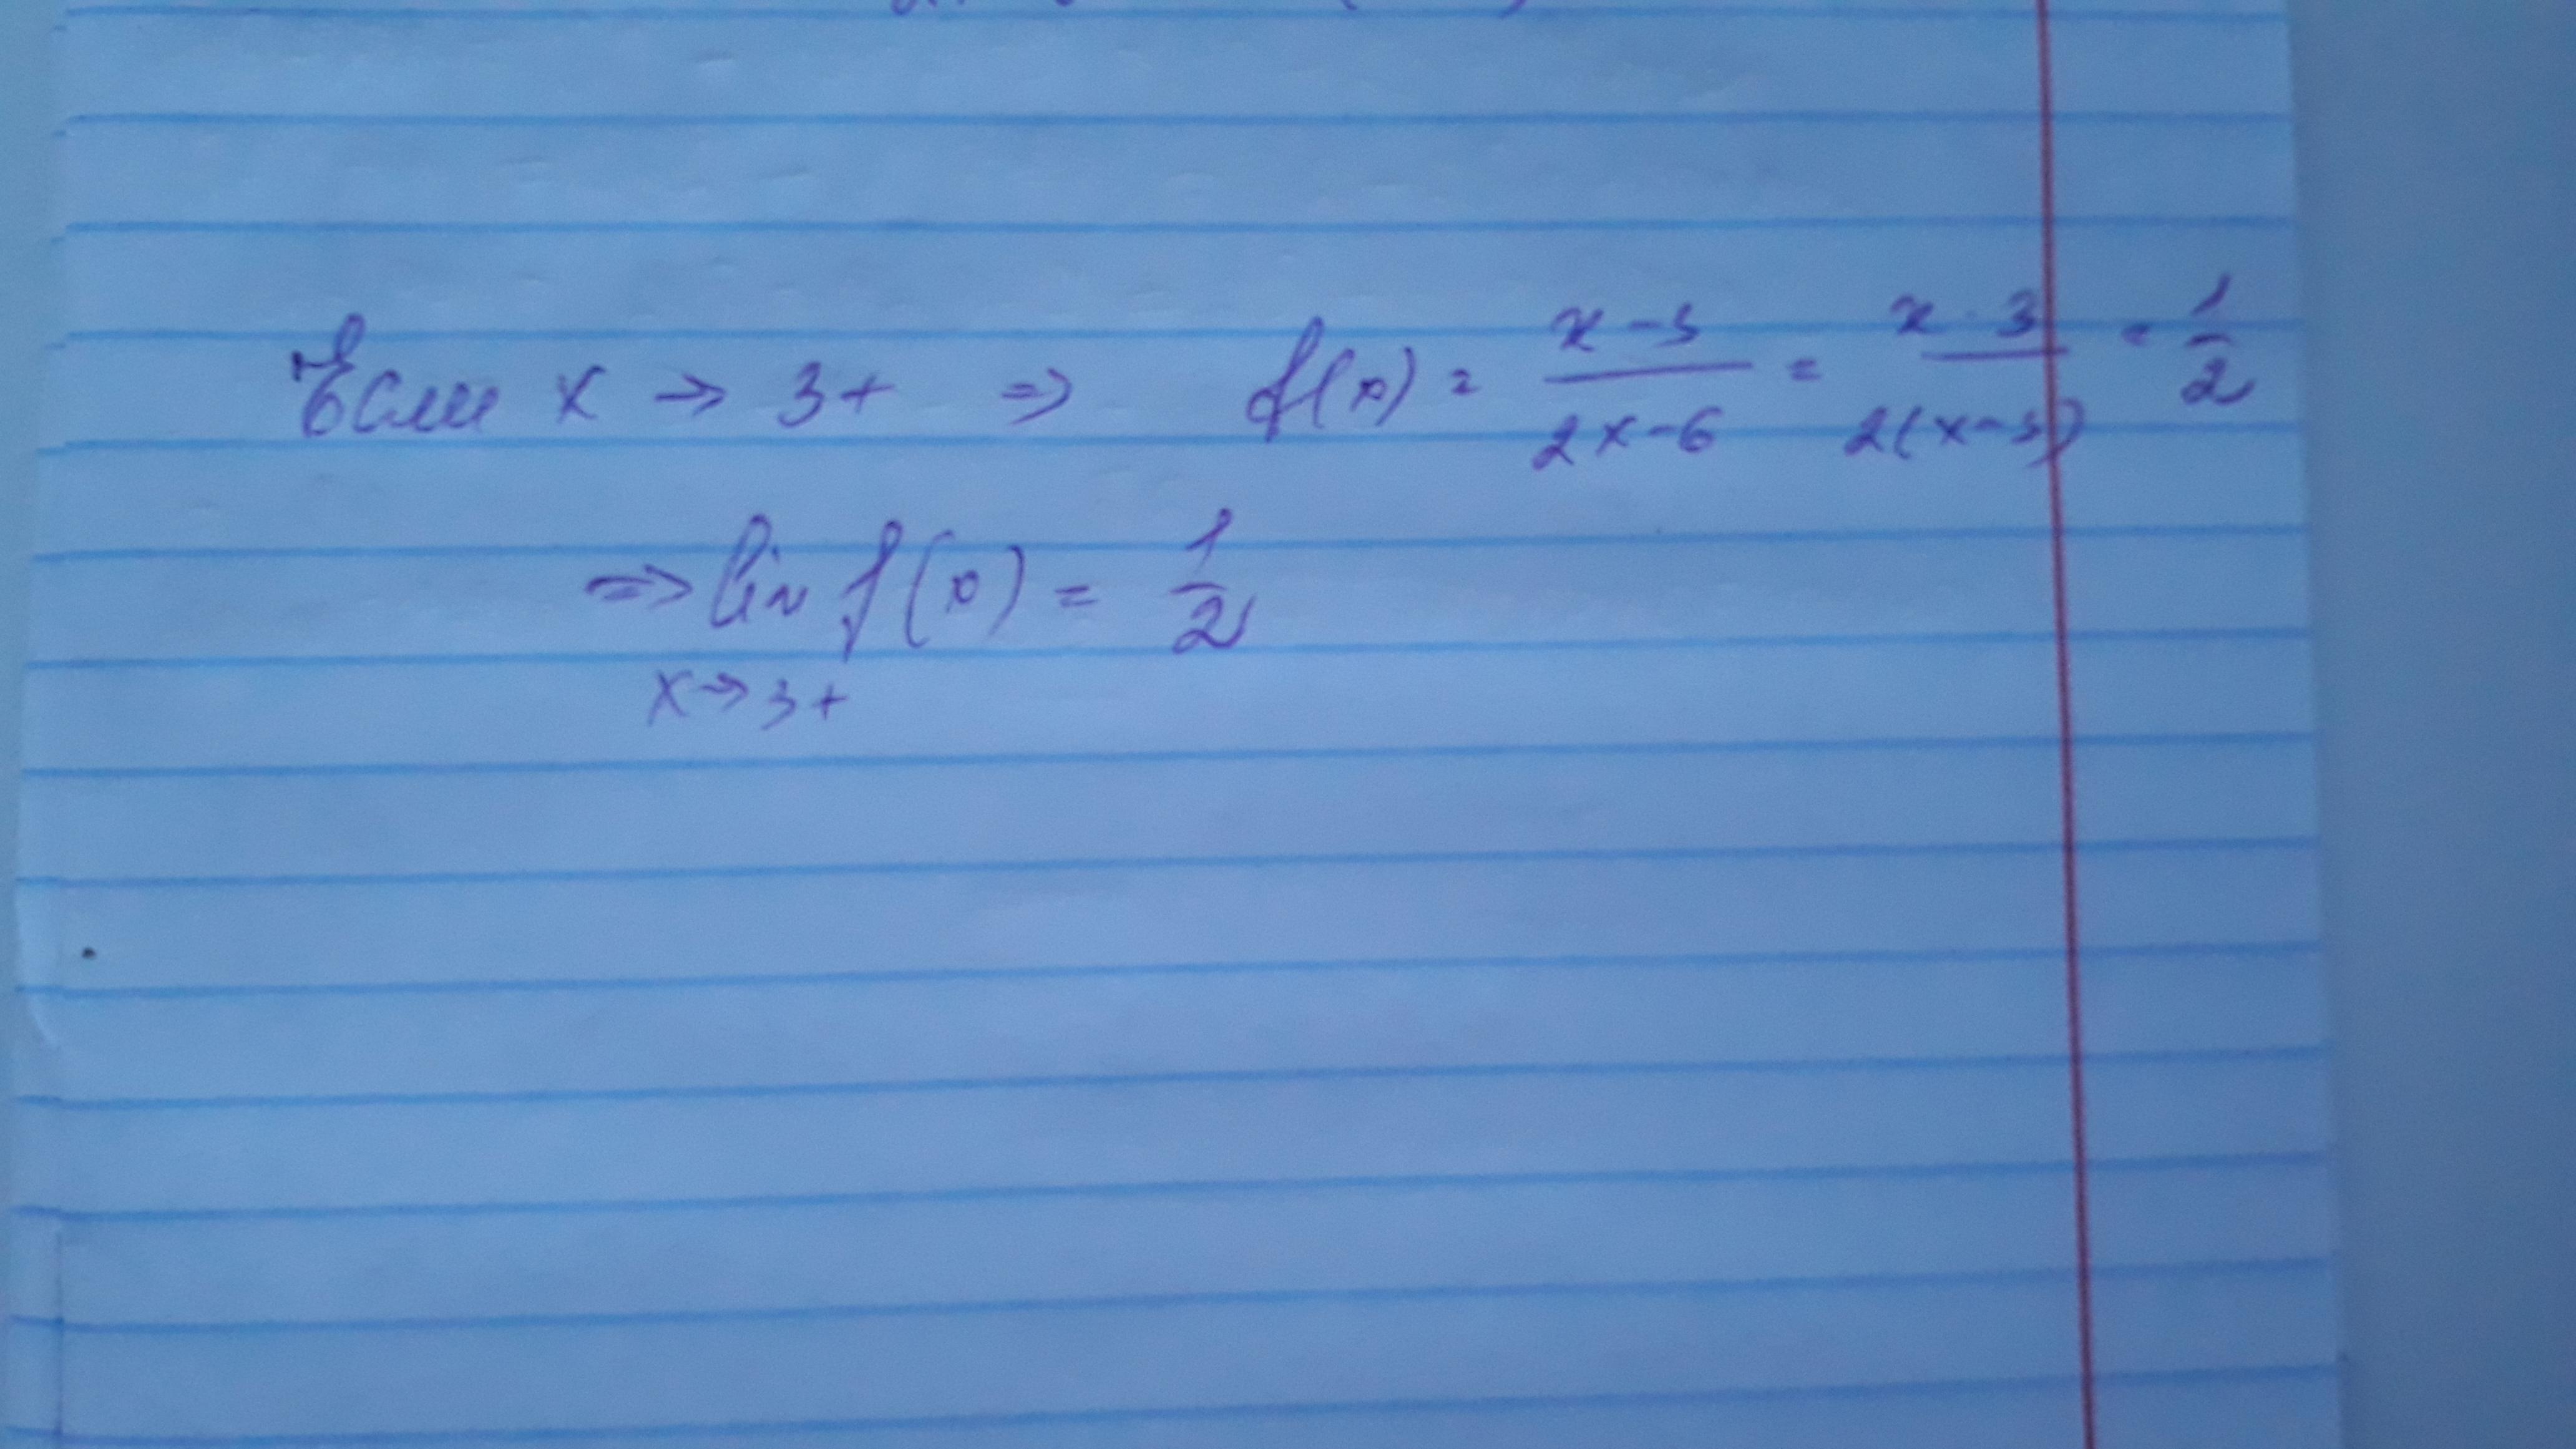 Если x → 3+ => f(x) = (x-3)/(2x-6) = (x-3)/(2(x-3)) = 1/2
=> lim f(x) = 1/2
x→3+